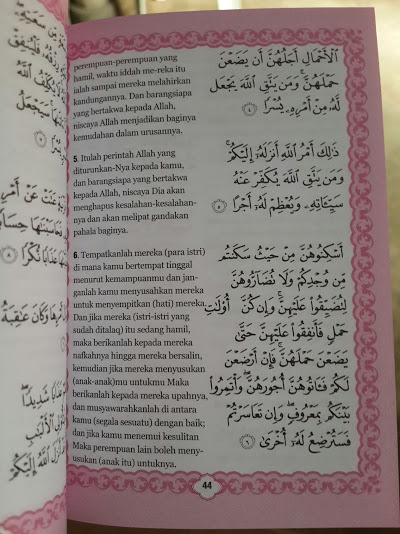 perempuan-perempuan yang
hamil, waktu iddah me-reka itu
ialah sampai mereka melahirkan
kandungannya. Dan barangsiapa
yang bertakwa kepada Allah,
niscaya Allah menjadikan baginya
kemudahan dalam urusannya.
5. Itulah perintah Allah yang
diturunkan-Nya kepada kamu,
dan barangsiapa yang bertakwa
kepada Allah, niscaya Dia akan
menghapus kesalahan-kesalahan-
nya dan akan melipat gandakan
pahala baginya.
6. Tempatkanlah mereka (para istri)
di mana kamu bertempat tinggal
menurut kemampuanmu dan jan-
ganlah kamu menyusahkan mereka
untuk menyempitkan (hati) mereka.
Dan jika mereka (istri-istri yang
sudah ditalaq) itu sedang hamil,
maka berikanlah kepada mereka
nafkahnya hingga mereka bersalin,
kemudian jika mereka menyusukan
(anak-anak)mu untukmu Maka
berikanlah kepada mereka upahnya,
dan musyawarahkanlah di antara
kamu (segala sesuatu) dengan baik;
dan jika kamu menemui kesulitan
Maka perempuan lain boleh meny-
usukan (anak itu) untuknya.
الْأَحْمَالِ أَجَلُهُنَّ أَن يَضَعْنَ
حَمْلَهُنَّ ۚ وَمَن يَتَّقِ اللَّهَ يَجْعَل
لَّهُ مِنْ أَمْرِهِ يُسْرًا ﴿٤﴾
ذَٰلِكَ أَمْرُ اللَّهِ أَنزَلَهُ إِلَيْكُمْ ۚ
وَمَن يَتَّقِ اللَّهَ يُكَفِّرْ عَنْهُ
سَيِّئَاتِهِ وَيُعْظِمْ لَهُ أَجْرًا ﴿٥﴾
أَسْكِنُوهُنَّ مِنْ حَيْثُ سَكَنتُم
مِّن وُجْدِكُمْ وَلَا تُضَارُّوهُنَّ
لِتُضَيِّقُوا عَلَيْهِنَّ ۚ وَإِن كُنَّ أُولَاتِ
حَمْلٍ فَأَنفِقُوا عَلَيْهِنَّ حَتَّىٰ
يَضَعْنَ حَمْلَهُنَّ ۚ فَإِنْ أَرْضَعْنَ
لَكُمْ فَآتُوهُنَّ أُجُورَهُنَّ ۖ وَأْتَمِرُوا
بَيْنَكُم بِمَعْرُوفٍ ۖ وَإِن تَعَاسَرْتُمْ
فَسَتُرْضِعُ لَهُ أُخْرَىٰ ﴿٦﴾
44